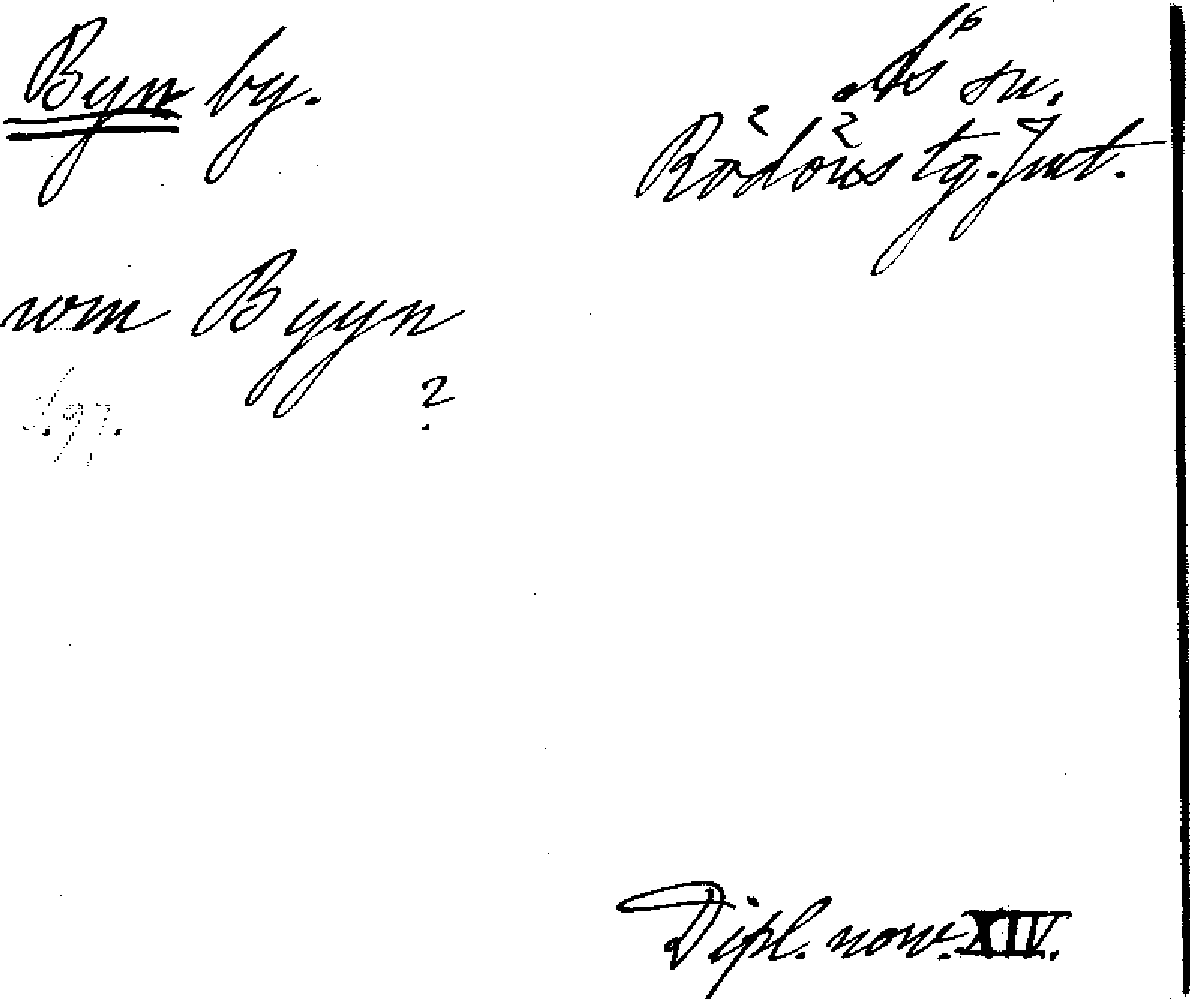 Byn by.
Ås sn.
Rödöns tg. Jmt.
vom Byyn
?
Dipl. norv. XIV.